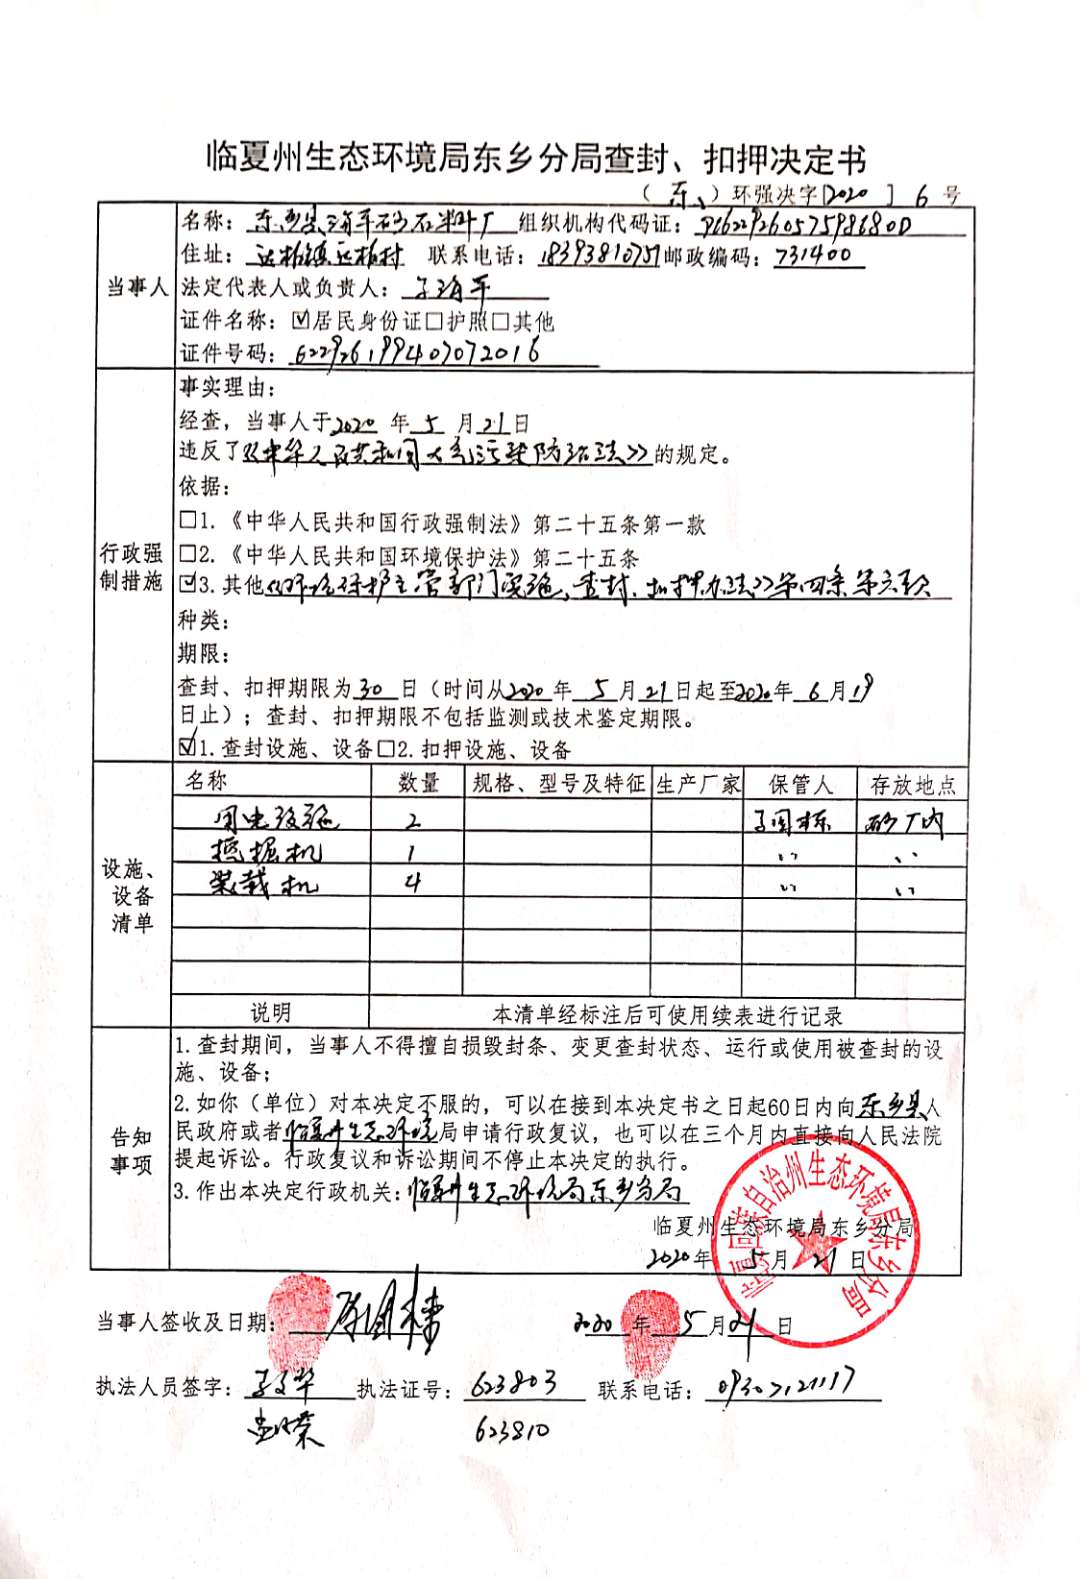 临夏州生态环境局东乡分局查封、扣押决定书
（东）环强决字[2020]6号
当事人
名称：东乡县海军砂石料厂 组织机构代码证：
住址：达板镇达板村 联系电话：18393810751 邮政编码：731400
法定代表人或负责人：
证件名称：☑居民身份证□护照□其他
证件号码：622926199407072016
行政强制措施
事实理由：
经查，当事人于2020年5月21日
违反了《中华人民共和国大气污染防治法》的规定。
依据：
□1.《中华人民共和国行政强制法》第二十五条第一款
□2.《中华人民共和国环境保护法》第二十五条
☑3.其他《环境保护主管部门实施、查封、扣押办法》第四条第六款
种类：
期限：
查封、扣押期限为30日（时间从2020年5月21日起至2020年6月19
日止）；查封、扣押期限不包括监测或技术鉴定期限。
☑1.查封设施、设备□2.扣押设施、设备
设施、设备清单
名称 数量 规格、型号及特征 生产厂家 保管人 存放地点
用电设施 2 砂厂内
挖掘机 1 〃 〃
装载机 4 〃 〃
说明 本清单经标注后可使用续表进行记录
告知事项
1.查封期间，当事人不得擅自损毁封条、变更查封状态、运行或使用被查封的设
施、设备；
2.如你（单位）对本决定不服的，可以在接到本决定书之日起60日内向东乡县人
民政府或者临夏州生态环境局申请行政复议，也可以在三个月内直接向人民法院
提起诉讼。行政复议和诉讼期间不停止本决定的执行。
3.作出本决定行政机关：临夏州生态环境局东乡分局
临夏州生态环境局东乡分局
2020年5月21日
临夏回族自治州生态环境局东乡分局
当事人签收及日期： 2020年5月21日
执法人员签字： 执法证号：623803 联系电话：09307121117
623810